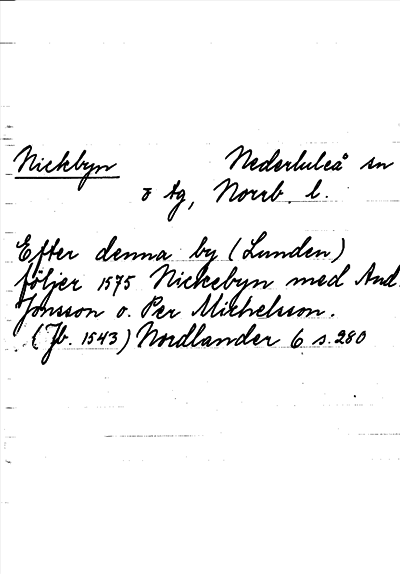 Nickbyn Nederluleå sn
o tg, Norrb. l.
Efter denna by (Lunden)
följer 1575 Nickebyn med And.
Jonsson o. Per Michelsson.
(Jb. 1543) Nordlander 6 s. 280